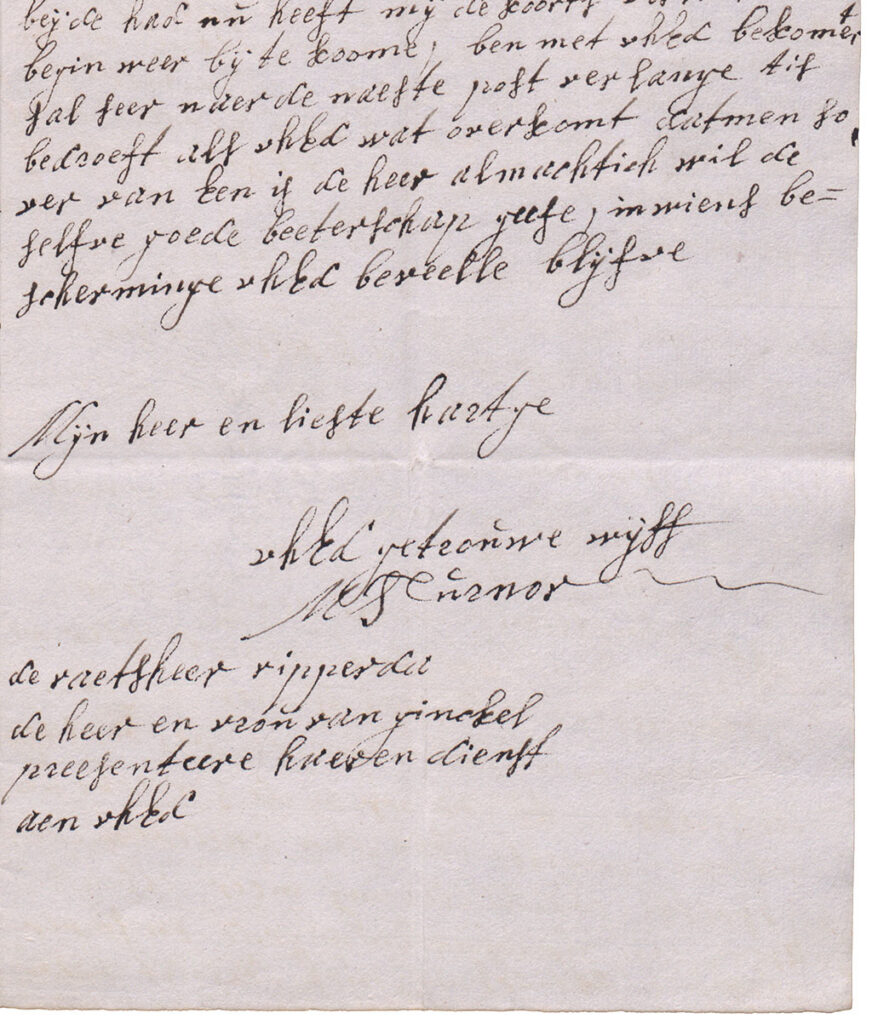 beijde had nu heeft mij de koorts
begin weer bij te koome, ben met uhEd bekomert
sal seer naer de naeste post verlange tis
bedroeft als uhEd wat overkomt datmen so
ver van een is de heer almachtich wil de
selfve goede beeterschap geefe, in wiens be=
scherminge uhEd beveelle blijfve
Mijn heer en liefste hartge
uhEd getrouwe wijff
M Turnor
de raetsheer ripperda
de heer en vrou van ginckel
preesenteere haeren dienst
aen uhEd